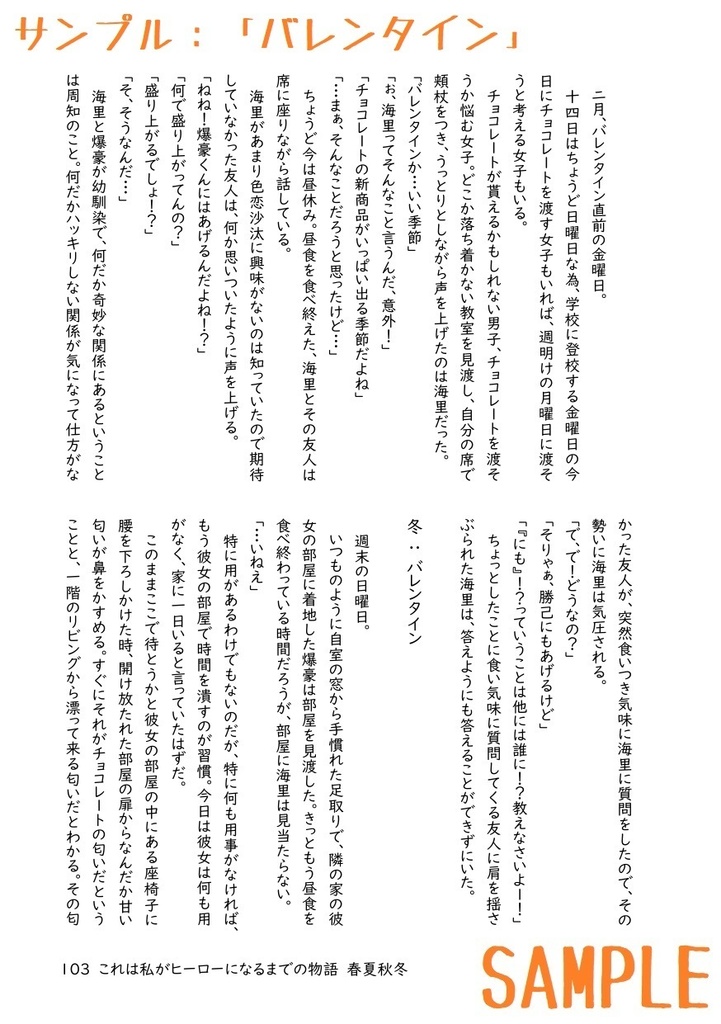 サンプル：「バレンタイン」
二月、バレンタイン直前の金曜日。
十四日はちょうど日曜日な為、学校に登校する金曜日の今
日にチョコレートを渡す女子もいれば、週明けの月曜日に渡そ
うと考える女子もいる。
チョコレートが貰えるかもしれない男子、チョコレートを渡そ
うか悩む女子。どこか落ち着かない教室を見渡し、自分の席で
頬杖をつき、うっとりとしながら声を上げたのは海里だった。
「バレンタインか…いい季節」
「お、海里ってそんなこと言うんだ、意外！」
「チョコレートの新商品がいっぱい出る季節だよね」
「…まぁ、そんなことだろうと思ったけど…」
ちょうど今は昼休み。昼食を食べ終えた、海里とその友人は
席に座りながら話している。
海里があまり色恋沙汰に興味がないのは知っていたので期待
していなかった友人は、何か思いついたように声を上げる。
「ねね！爆豪くんにはあげるんだよね！？」
「何で盛り上がってんの？」
「盛り上がるでしょ！？」
「そ、そうなんだ…」
海里と爆豪が幼馴染で、何だか奇妙な関係にあるということ
は周知のこと。何だかハッキリしない関係が気になって仕方がな
かった友人が、突然食いつき気味に海里に質問をしたので、その
勢いに海里は気圧される。
「で、で！どうなの？」
「そりゃぁ、勝己にもあげるけど」
「『にも』！？っていうことは他には誰に！？教えなさいよー！」
ちょっとしたことに食い気味に質問してくる友人に肩を揺さ
ぶられた海里は、答えようにも答えることができずにいた。
冬：バレンタイン
週末の日曜日。
いつものように自室の窓から手慣れた足取りで、隣の家の彼
女の部屋に着地した爆豪は部屋を見渡した。きっともう昼食を
食べ終わっている時間だろうが、部屋に海里は見当たらない。
「…いねえ」
特に用があるわけでもないのだが、特に何も用事がなければ、
もう彼女の部屋で時間を潰すのが習慣。今日は彼女は何も用
がなく、家に一日いると言っていたはずだ。
このままここで待とうかと彼女の部屋の中にある座椅子に
腰を下ろしかけた時、開け放たれた部屋の扉からなんだか甘い
匂いが鼻をかすめる。すぐにそれがチョコレートの匂いだという
ことと、一階のリビングから漂って来る匂いだとわかる。その匂
103 これは私がヒーローになるまでの物語 春夏秋冬
SAMPLE